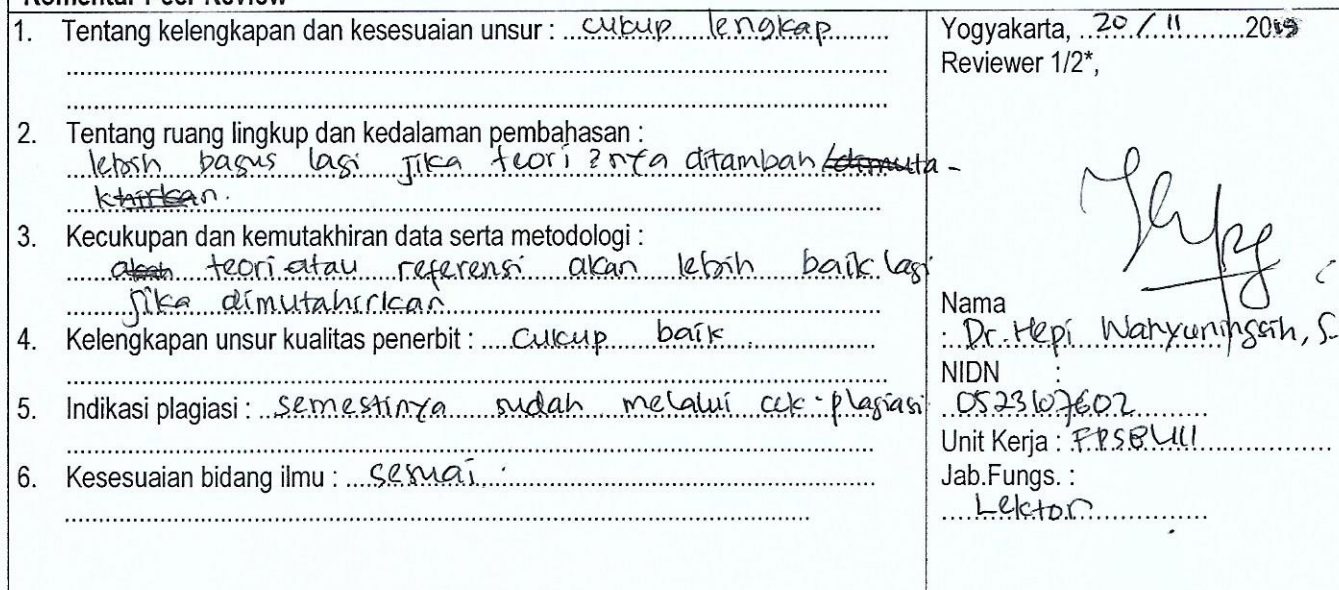 Komentar Peer Review
1. Tentang kelengkapan dan kesesuaian unsur : cukup lengkap
2. Tentang ruang lingkup dan kedalaman pembahasan :
lebih bagus lagi jika teori2nya ditambah /dimuta-
khirkan.
3. Kecukupan dan kemutakhiran data serta metodologi :
teori atau referensi akan lebih baik lagi
jika dimutahirkan
4. Kelengkapan unsur kualitas penerbit : cukup baik
5. Indikasi plagiasi : semestinya sudah melalui cek-plagiasi
6. Kesesuaian bidang ilmu : sesuai
Yogyakarta, 20 / 11 2019
Reviewer 1/2*,
Nama
: Dr. Hepi Wahyuningsih, S.
NIDN :
0523107602
Unit Kerja : FPSB UII
Jab.Fungs. :
Lektor